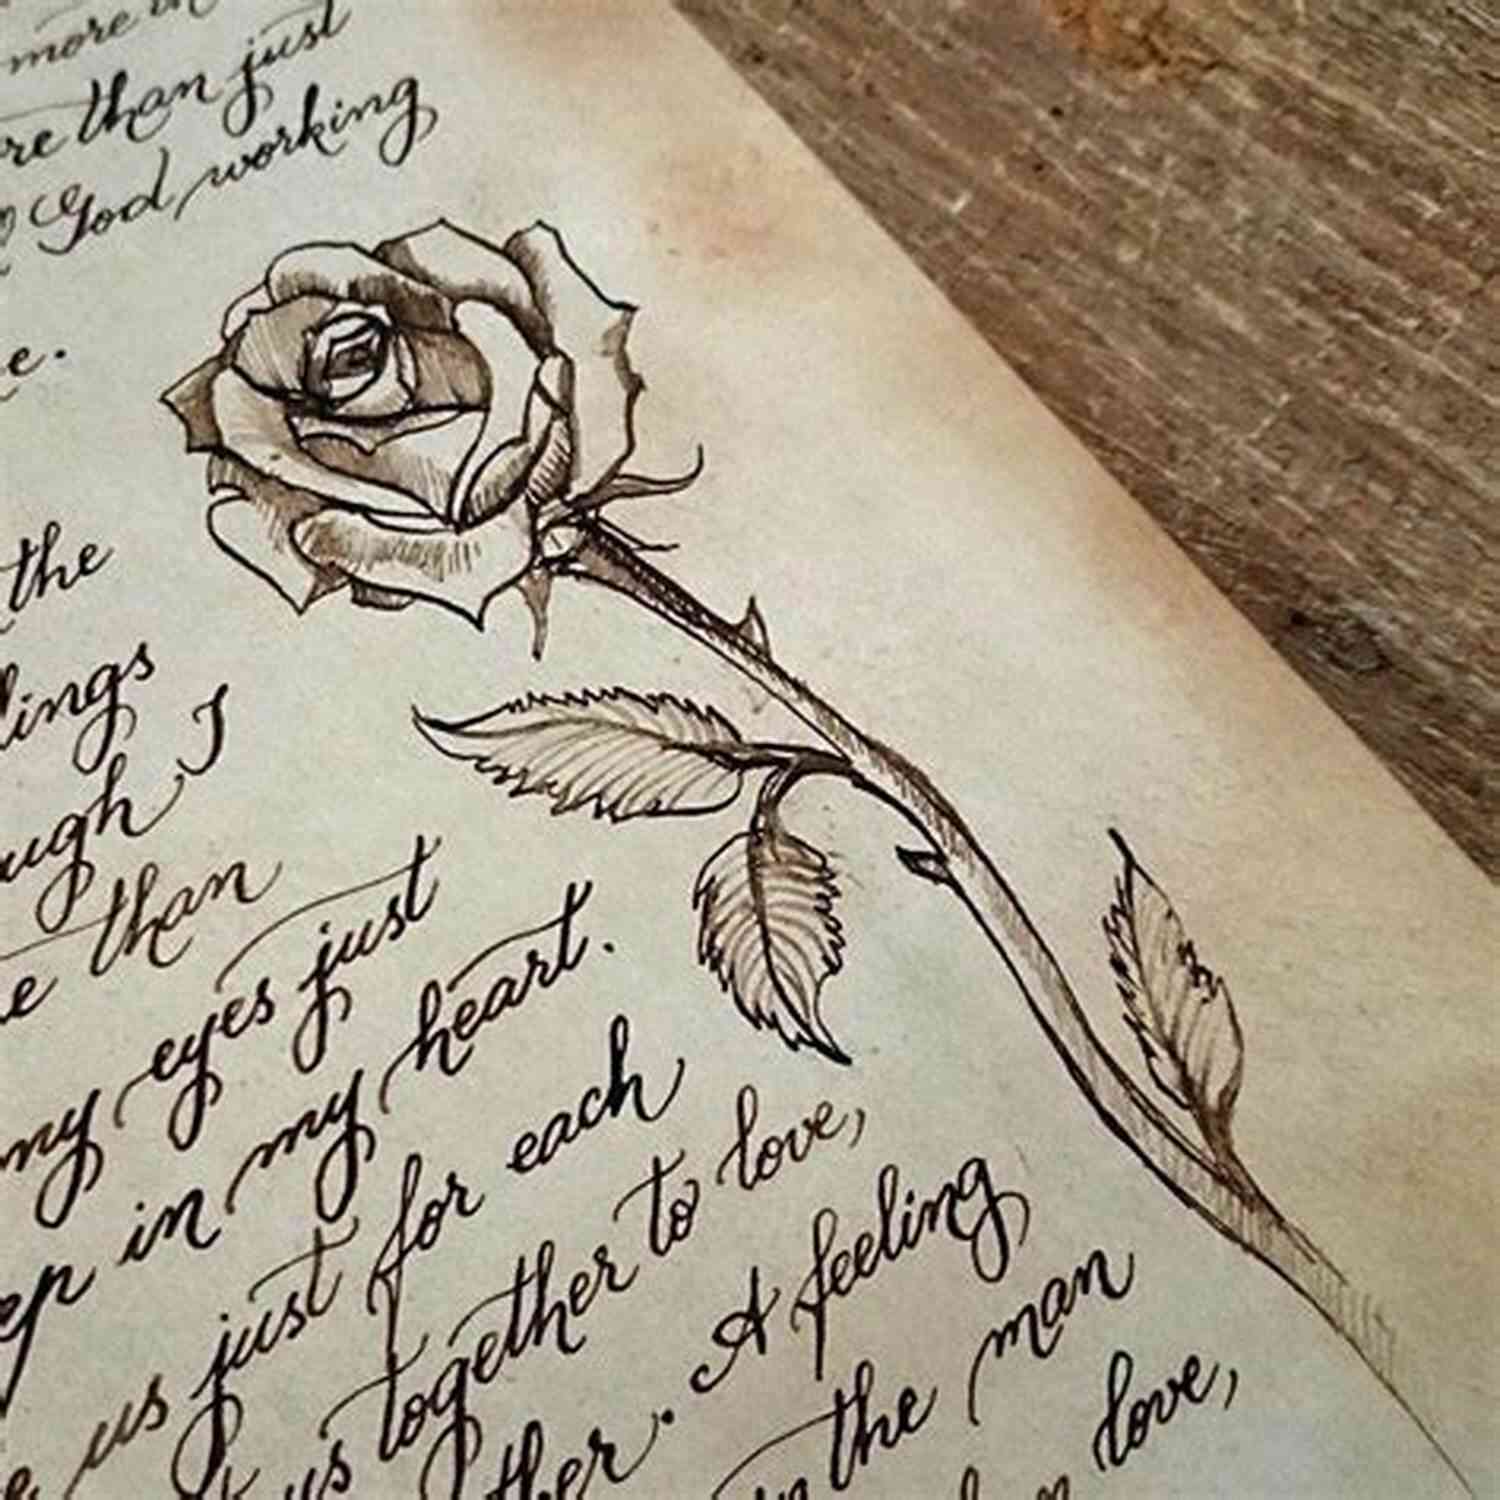 more in
than just
God working
the
I
than
my eyes just
in my heart.
us just for each
us together to love,
A feeling
the man
love,